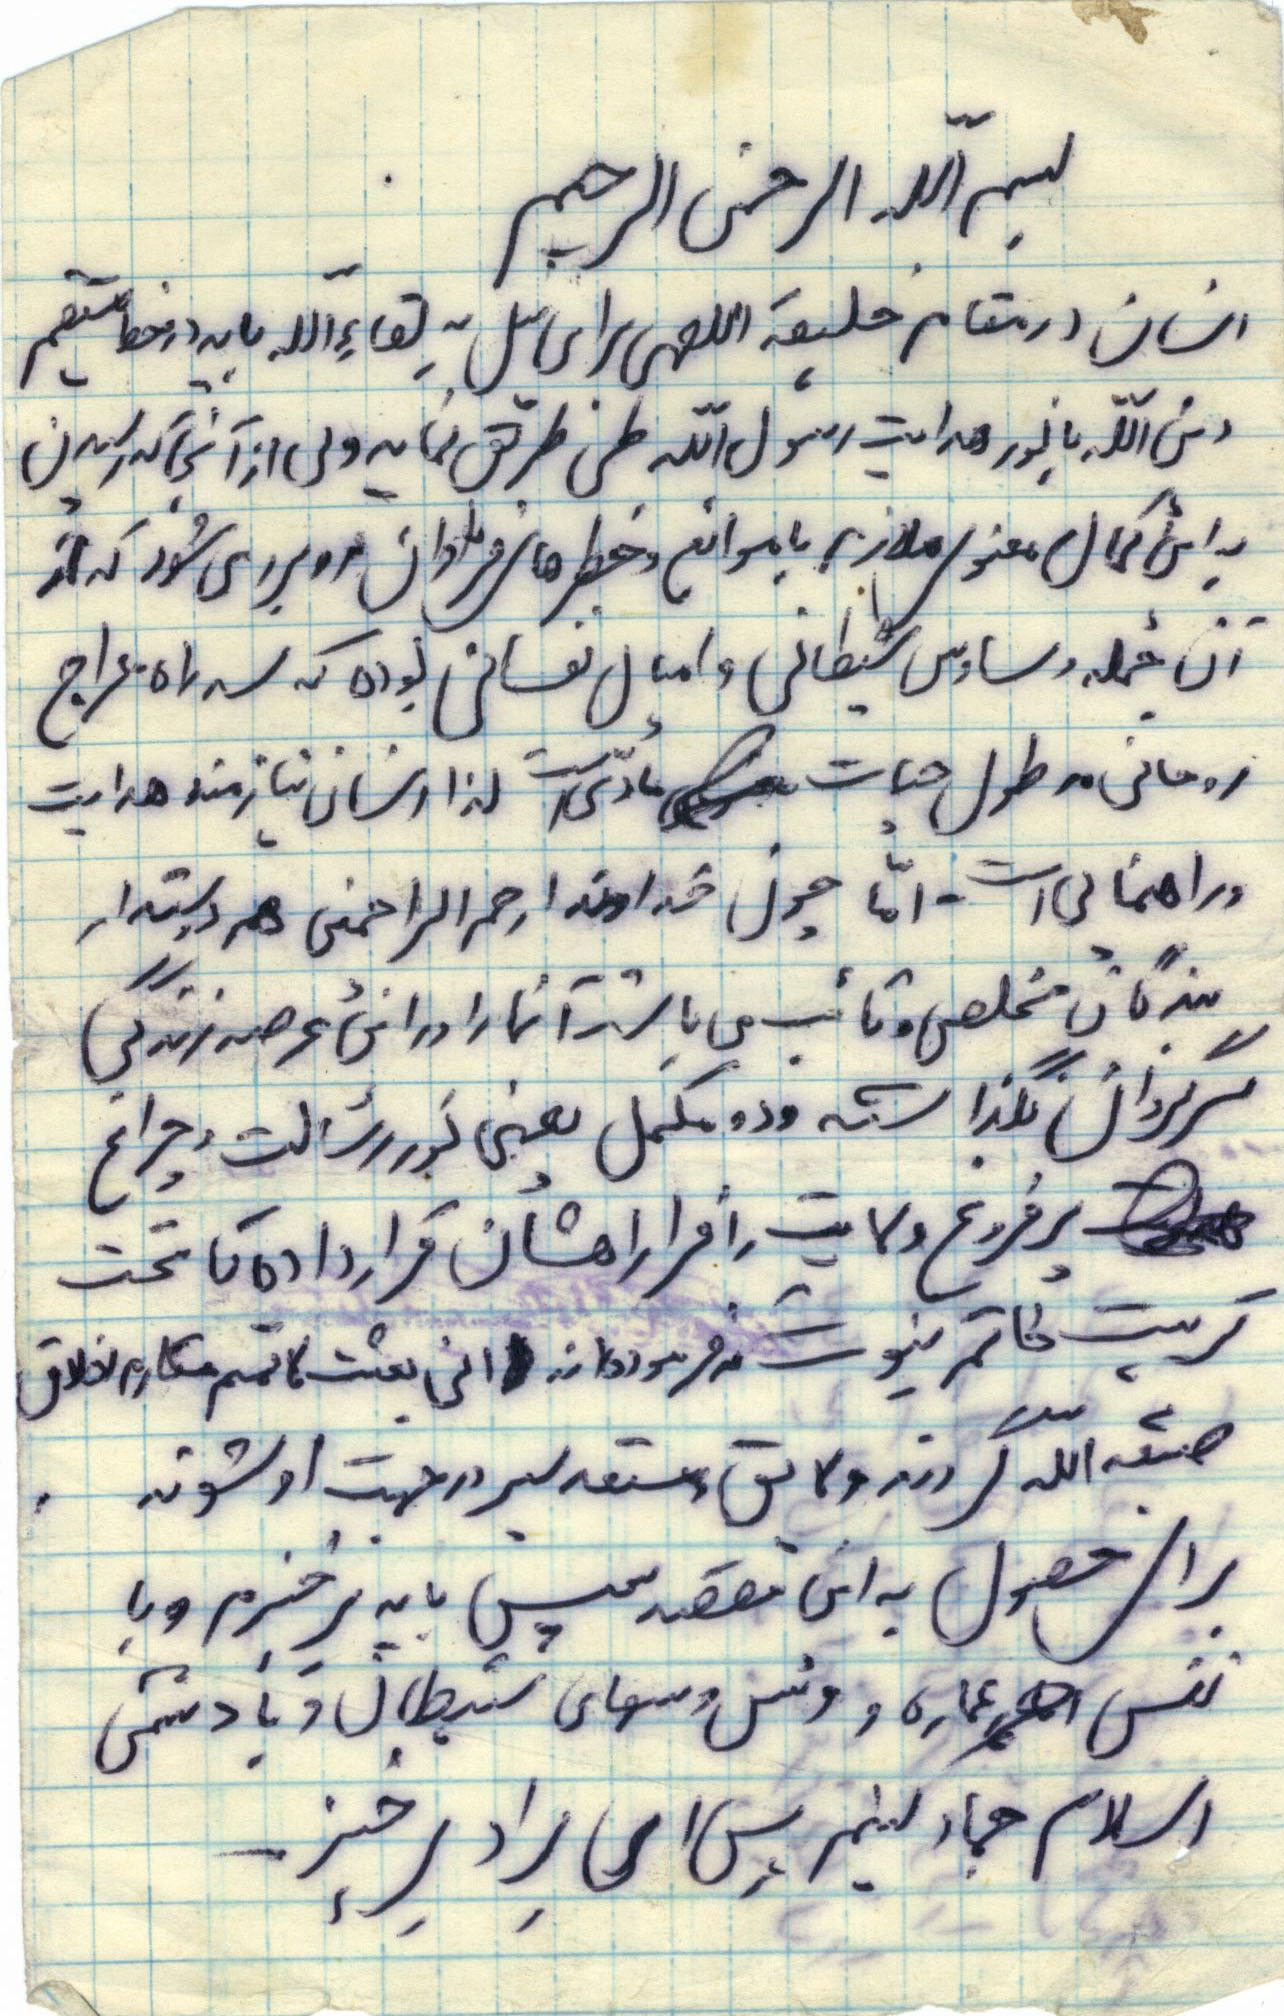 بسم اللّه الرحمن الرحیم
انسان در مقام خلیفه اللهی برای نیل به لقاءِ اللّه باید در خط مستقیم
دین اللّه با نور هدایت رسول اللّه طی طریق نماید ولی از آنجا که رسیدن
به این کمال معنوی ملازم با موانع و خطرهای فراوان روبرو می شود که از
آن جمله وساوس شیطانی و امیال نفسانی بوده که سد راه معراج
روحانی در طول حیات مادّی است لذا انسان نیازمند هدایت
و راهنمائی است - امّا چون خداوند ارحم الراحمین هم دوستدار
بندگان مخلص و تائب می باشد آنها را در این عرصه زندگی
سرگردان نگذاشته و دو مکمل یعنی نور رسالت و چراغ
پر فروغ ولایت را فرا راهشان قرار داده تا تحت
تربیت خاتم نبوت که فرموده اند انی بعثت لاتمم مکارم اخلاق
صبغه اللّه گردند و لایق و مستعد سیر در جهت او شوند .
برای حصول به این مقصد پس باید برخیزم و با
نفس عماره و وسوسهای شیطان و با دشمن
اسلام جهاد کنیم پس ای برادر برخیز